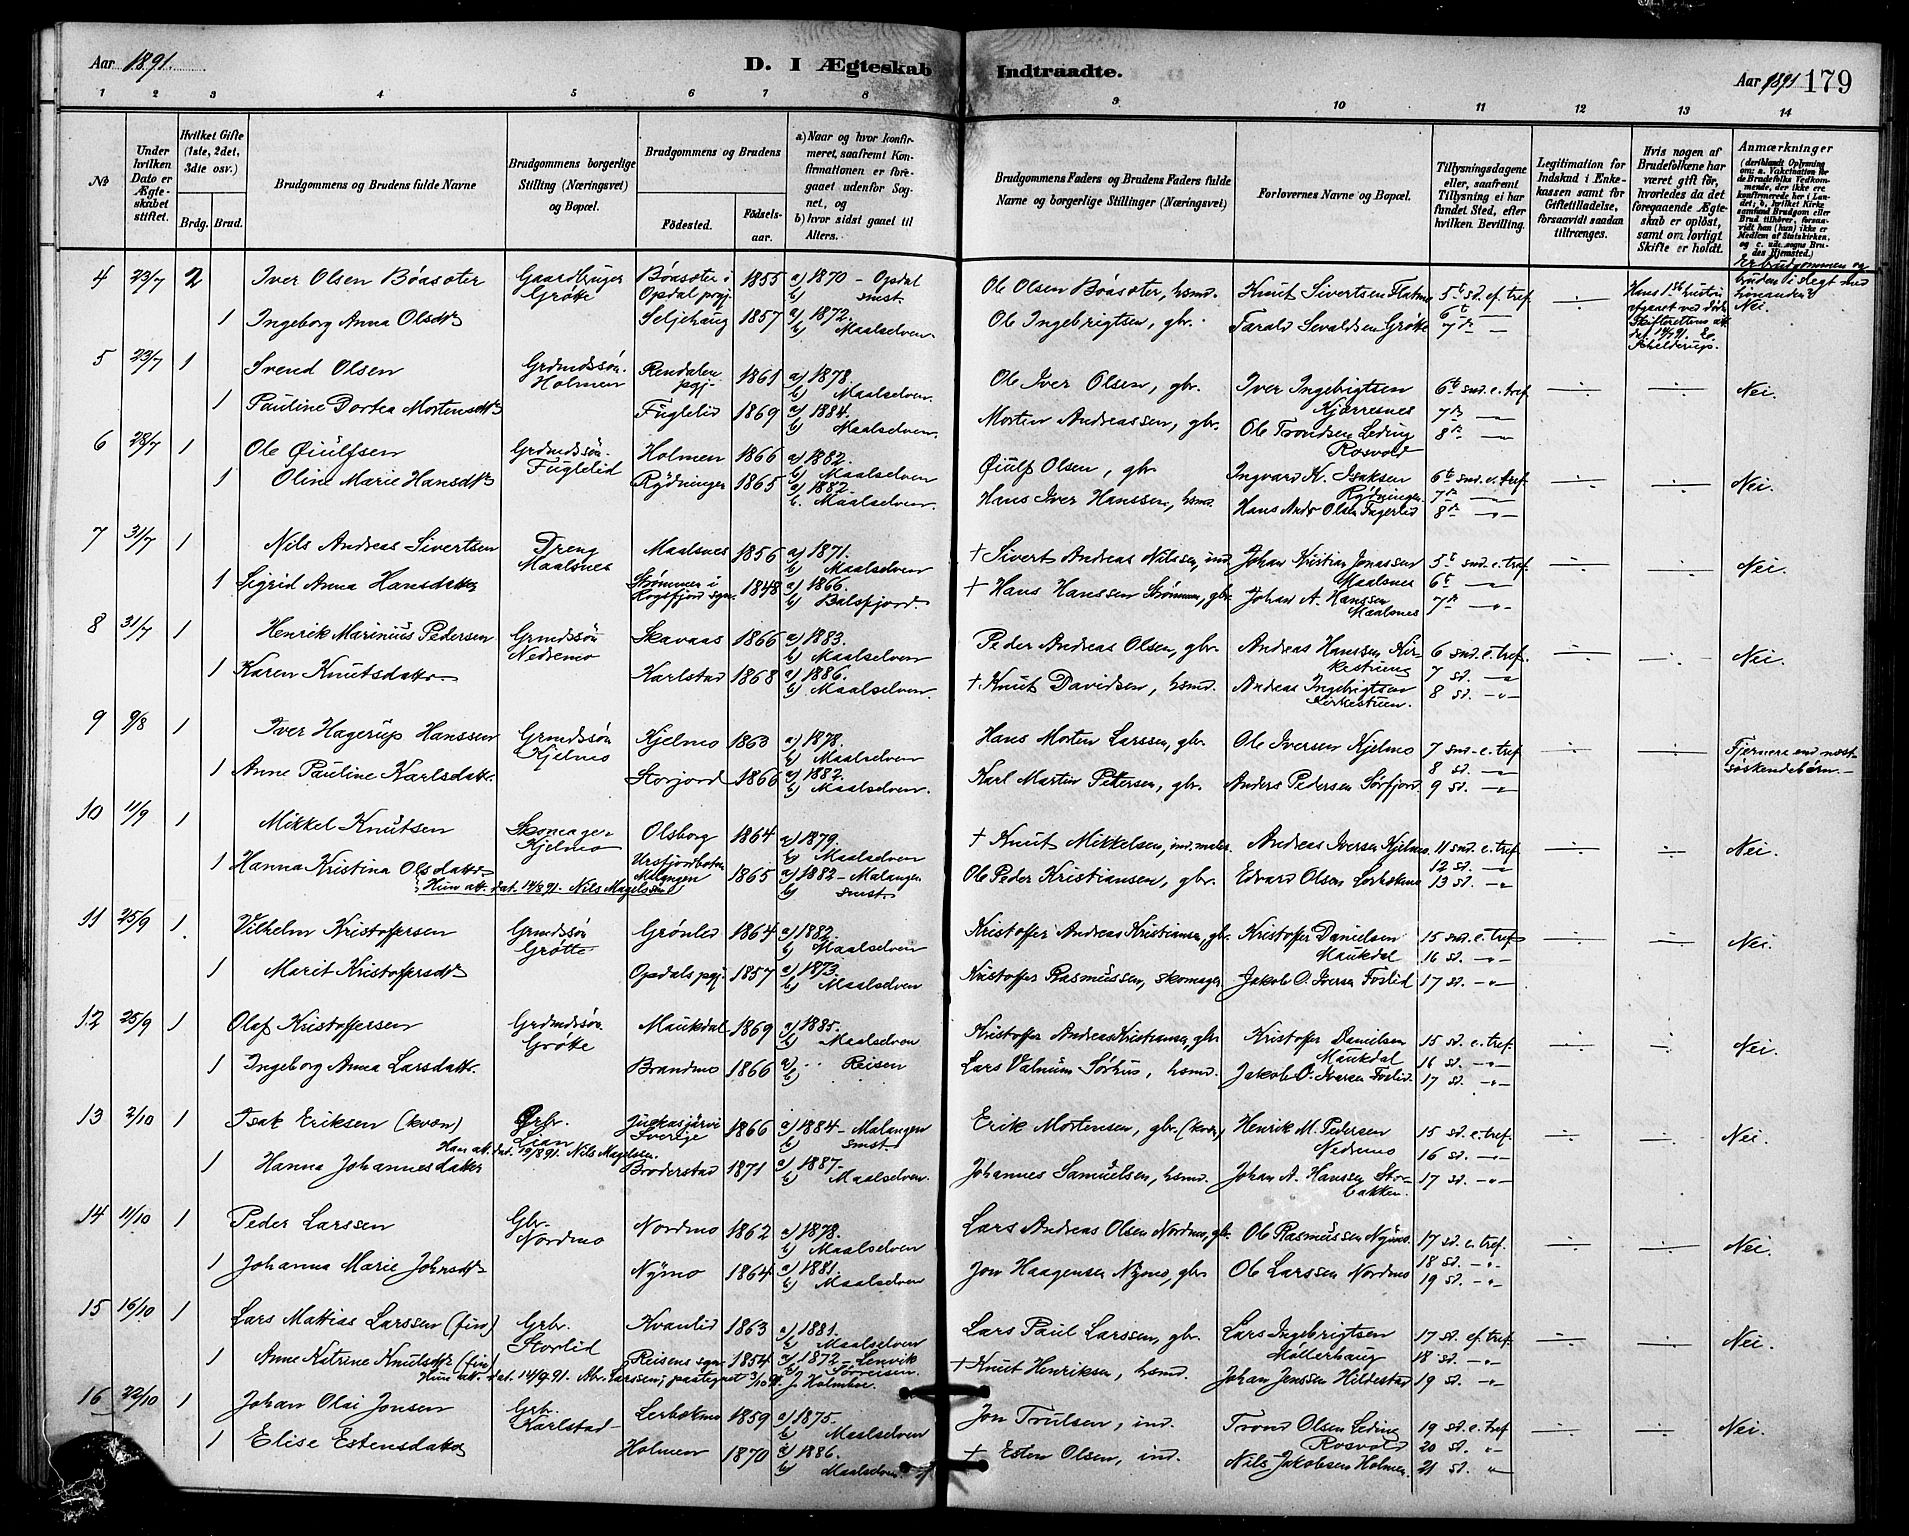 Aar 1891.
D. I Ægteskab Indtraadte.
Aar 1891 179
1 2 3 4 5 6 7 8 9 10 11 12 13 14
No
Under hvilken Dato er Ægteskabet stiftet.
Hvilket Gifte (1ste, 2det, 3die osv.)
Brdg. Brud.
Brudgommens og Brudens fulde Navne
Brudgommens borgerlige Stilling (Næringsvei) og Bopæl.
Brudgommens og Brudens
Födested. Födselsaar.
a) Naar og hvor konfirmeret, saafremt Konfirmationen er foregaaet udenfor Sognet, og
b) hvor sidst gaaet til Alters.
Brudgommens Faders og Brudens Faders fulde Navne og borgerlige Stillinger (Næringsvei)
Forlovernes Navne og Bopæl.
Tillysningsdagene eller, saafremt Tillysning ei har fundet Sted, efter hvilken Bevilling.
Legitimation for Indskud i Enkekassen samt for Giftetilladelse, forsaavidt saadan tiltrænges.
Hvis nogen af Brudefolkene har været gift för, hvorledes da det foregaaende Ægteskab er oplöst, samt om lovligt Skifte er holdt.
Anmærkninger
4 23/7 2 Iver Olsen Bøasæter Gaardbruger Grøtte Bøasæter i Opdal prgj. 1855 a) 1870 - Opdal b) smst. Ole Olsen Bøasæter, hsmd. Knut Sivertsen 5te sd. ef. tref. -:-
1 Ingeborg Anna Olsdtr Seljehaug 1857 a) 1872. b) Maalselven. Ole Ingebrigtsen, gbr. Tarald Sevaldsen Grøtte 6te - 7de - Nei.
5 23/7 1 Svend Olsen Grdmdssøn. Holmen Rendalen pgj. 1861 a) 1878. b) Maalselven. Ole Iver Olsen, gbr. Iver Ingebrigtsen Kjærresnes 6te snd. e. tref. -:- -:- Nei.
1 Pauline Dortea Mortensdtr Fuglelid 1869 a) 1884. b) Maalselven. Morten Andreassen, gbr. Ole Trondsen Leding Rosvold 7de - 8de -
6 28/7 1 Ole Øiulfsen Grdmdssøn. Fuglelid Holmen 1866 a) 1882. b) Maalselven Øiulf Olsen, gbr. Ingvard K. Isaksen Rydningen 6te snd. e. tref. -:- -:- Nei.
1 Oline Marie Hansdtr Rydningen 1865 a) 1882. b. Maalselven. Hans Iver Hanssen, hsmd. Hans Andr Olsen 7de - 8de -
7 31/7 1 Nils Andreas Sivertsen Dreng Maalsnes Maalsnes 1856 a) 1871. b) Maalselven † Sivert Andreas Nilssen, ind. Johan Kristian Jonassen Maalsnes 5te snd. e. tref. -:- -:- Nei.
1 Sigrid Anna Hansdatter Strømmen i sgn. 1848 a) 1866. b) Balsfjord. † Hans Hanssen Strømmen, gbr. Johan A. Hanssen Maalsnes 6te - 7de -
8 31/7 1 Henrik Marinius Pedersen Grmdssøn Nedremo Skavaas 1866 a) 1883. b) Maalselven Peder Andreas Olsen, gbr. Andreas Hanssen Kirkestuen 6 snd. e. tref. -:- -:- Nei.
1 Karen Knutsdattr. Karlstad 1868 a) 1886. b) Maalselven. † Knut Davidsen, hsmd. Andreas Ingebrigtsen Kirkestuen. 7 sd. - 8 sd. -
9 9/8 1 Iver Hagerup Hanssen Grmdssøn Kjelmo Kjelmo 1863 a) 1878. b) Maalselven Hans Morten Larssen, gbr. Ole Iversen Kjelmo 7 snd. e. tref. -:- -:- Fjernere end næstsøskendebørn.
1 Anne Pauline Karlsdattr. Storjord 1866 a) 1882. b) Maalselven. Karl Martin Petersen, gbr. Anders Pedersen Sørfjord 8 sd. - 9 sd. -
10 11/9 1 Mikkel Knutsen Skomager Kjelmo Olsborg 1864 a) 1879. b) Maalselven † Knut Mikkelsen, ind. Andreas Iversen Kjelmo 11 snd. e. tref. -:- -:- Nei.
1 Hanna Kristina Olsdatter Malangen 1865 a) 1882 - Malangen b) smst. Ole Peder Kristiansen, gbr. Edvard Olsen 12 sd. - 13 sd. -
Hun att. dat. 14/8 91. Nils Magelssen
11 25/9 1 Vilhelm Kristoffersen Grmdssøn Grøtte Grønlid 1864 a) 1882. b) Maalselven Kristoffer Andreas Kristiansen, gbr. Kristoffer Danielsen Maukdal 15 snd. e. tref. -:- -:- Nei.
1 Marit Kristoffersdtr Opdals pgj. 1857 a) 1873. b) Maalselven Kristoffer Rasmussen, skomager Jakob O. Iversen Foslid 16 sd. - 17 sd. -
12 25/9 1 Olaf Kristoffersen Grdmdssøn. Grøtte Maukdal 1869 a) 1885. b) Maalselven Kristoffer Andreas Kristiansen, gbr. Kristoffer Danielsen Maukdal 15 sd. e. tref. -:- -:- Nei.
1 Ingeborg Anna Larsdattr. Brandmo 1866 a) b) Reisen Lars Valnum Sørhus, hsmd. Jakob O. Iversen Foslid 16 sd. - 17 sd. -
13 2/10 1 Isak Eriksen (kvæn) Grbr. Lian Juckasjärvi Sverige 1866 a) 1884 - Malangen b) smst. Erik Mortensen, gbr. (kvæn) Henrik M. Pedersen Nedremo 15 sd. e. tref. -:- -:- Nei.
Han att. dat. 19/8 91. Nils Magelssen.
1 Hanna Johannesdatter Broderstad 1871 a) 1887. b) Maalselven. Johannes Samuelsen, hsmd. Johan A. Hanssen Storbakken. 16 sd. - 17 sd. -
14 11/10 1 Peder Larssen Gbr. Nordmo Nordmo 1862 a) 1878. b) Maalselven Lars Andreas Olsen Nordmo, gbr. Ole Rasmussen Nymo. 17 sd. e. tref. -:- -:- Nei.
1 Johanna Marie Johnsdtr Nymo 1864 a) 1881. b) Maalselven Jon Haagensen Nymo, gbr. Ole Larssen Nordmo 18 sd. - 19 sd. -
15 16/10 1 Lars Mattias Larssen (fin) Grbr. Storlid Kvanlid 1863 a) 1881. b) Maalselven Lars Paul Larssen, gbr. Lars Ingebrigtsen Møllerhaug 17 sd. ef. tref. -:- -:- Nei.
1 Anne Katrine Knutsdtr (fin) Reisens sgn. 1854 a) 1872 - Lenvik b) Sørreisen. † Knut Henriksen, hsmd. Johan Jenssen Hildestad 18 sd. - 19 sd. -
Hun att. dat. 14/9. 91. Abr. Larssen; pategnet 3/10 91. J. Holmboe.
16 22/10 1 Johan Olai Jonsen Grbr. Karlstad Lerbækmo 1859 a) 1875. b) Maalselven Jon Trulsen, ind. Trond Olsen Leding Rosvold 19 sd. e. tref. -:- -:- Nei.
1 Elise Estensdatter Holmen 1870 a) 1886. b) Maalselven † Esten Olsen, ind. Nils Jakobsen Holmen. 20 sd. - 21 sd. -